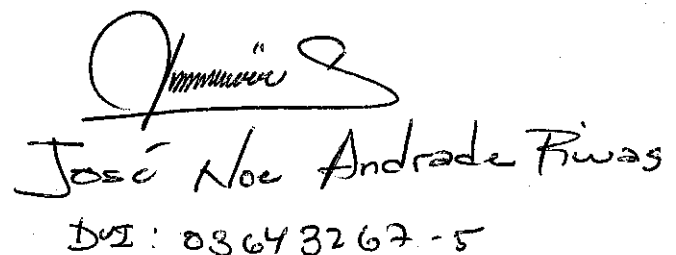 José Noe Andrade Rivas
DUI: 03643267-5